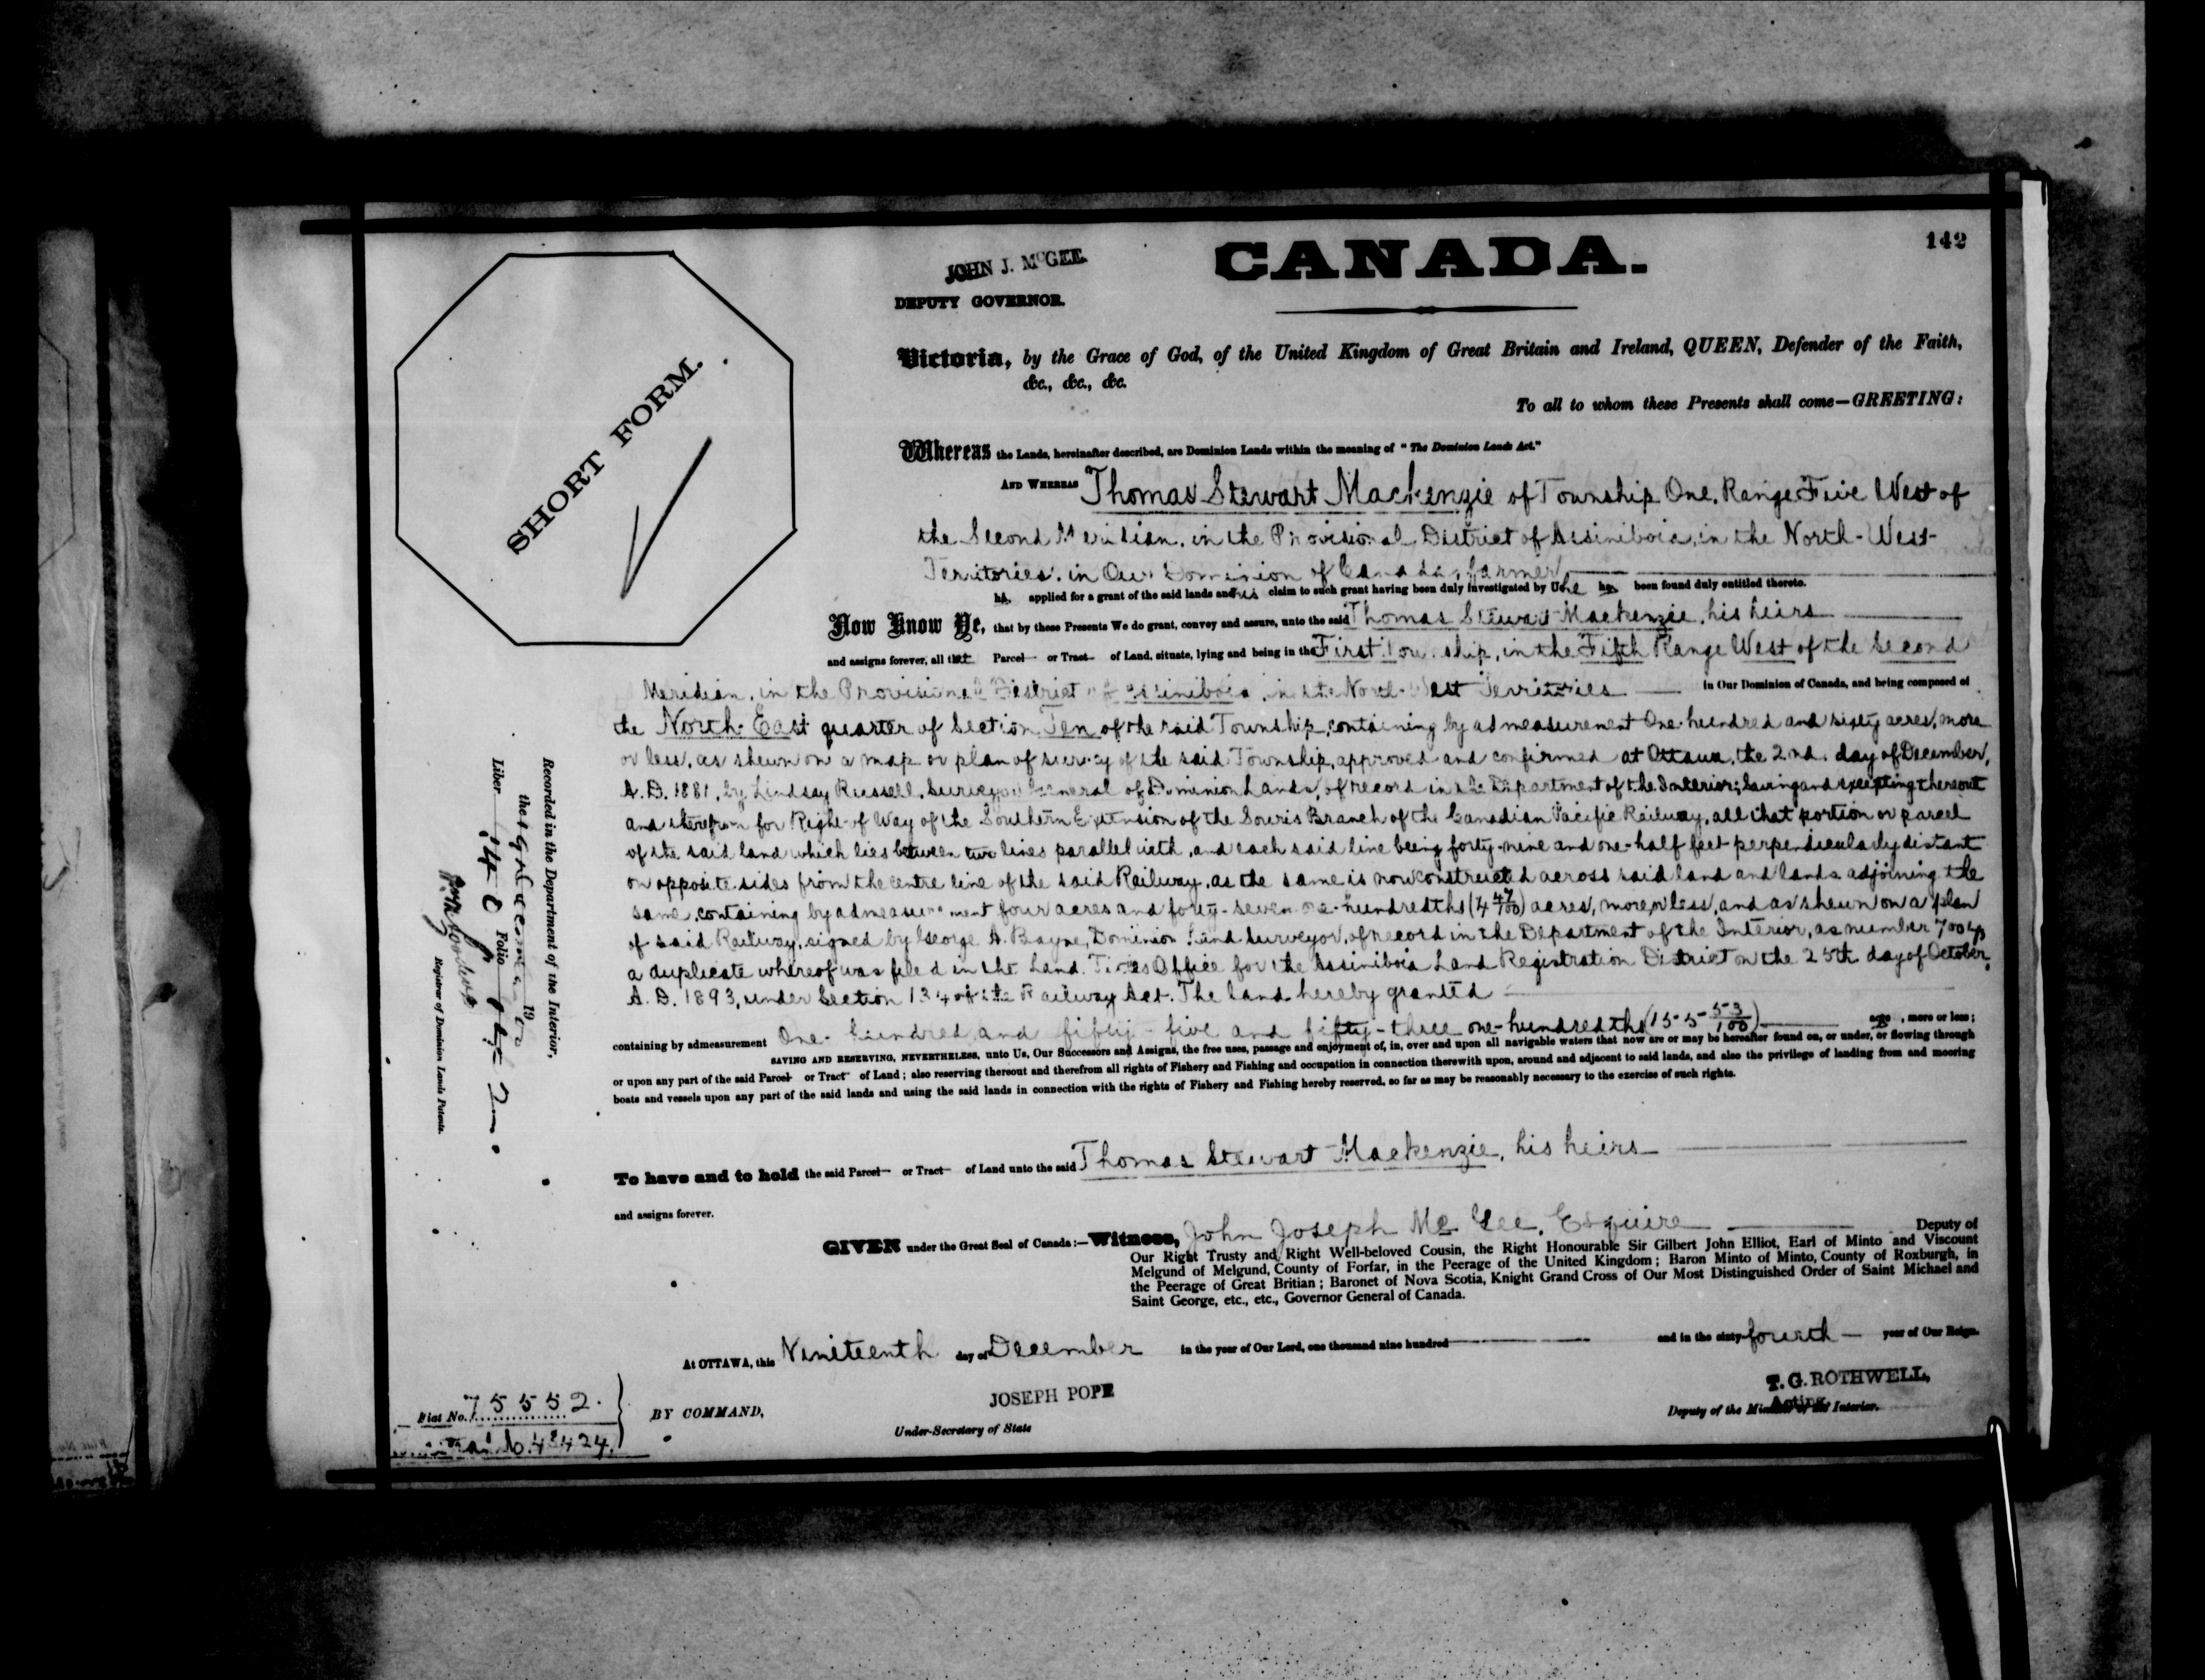 142
JOHN J. McGEE.
CANADA.
DEPUTY GOVERNOR.
SHORT FORM.
Victoria, by the Grace of God, of the United Kingdom of Great Britain and Ireland, QUEEN, Defender of the Faith,
&c., &c., &c.
To all to whom these Presents shall come—GREETING:
Whereas the Lands, hereinafter described, are Dominion Lands within the meaning of "The Dominion Lands Act."
AND WHEREAS Thomas Stewart Mackenzie of Township One, Range Five West of
the Second Meridian, in the Provisional District of Assiniboia, in the North-West
Territories, in Our Dominion of Canada, farmer,
has applied for a grant of the said lands and his claim to such grant having been duly investigated by Us he has been found duly entitled thereto.
Now Know Ye, that by these Presents We do grant, convey and assure, unto the said Thomas Stewart Mackenzie, his heirs
and assigns forever, all that Parcel or Tract of Land, situate, lying and being in the First Township, in the Fifth Range West of the Second
Meridian, in the Provisional District of Assiniboia, in the North-West Territories in Our Dominion of Canada, and being composed of
the North-East quarter of Section Ten of the said Township, containing by admeasurement One hundred and sixty acres, more
or less, as shewn on a map or plan of survey of the said Township, approved and confirmed at Ottawa, the 2nd. day of December,
A.D. 1881, by Lindsay Russell, Surveyor General of Dominion Lands, of record in the Department of the Interior; Saving and excepting thereout
and therefrom for Right-of Way of the Southern Extension of the Souris Branch of the Canadian Pacific Railway, all that portion or parcel
of the said land which lies between two lines parallel with, and each said line being forty-nine and one-half feet perpendicularly distant
on opposite sides from the centre line of the said Railway, as the same is now constructed across said land and lands adjoining the
same, containing by admeasurement four acres and forty-seven one-hundredths (4 47/100) acres, more or less, and as shewn on a plan
of said Railway, signed by George A. Bayne, Dominion Land Surveyor, of record in the Department of the Interior, as number 7004,
a duplicate whereof was filed in the Land Titles Office for the Assiniboia Land Registration District on the 25th day of October,
A.D. 1893, under Section 134 of the Railway Act. The land hereby granted
containing by admeasurement One hundred and fifty-five and fifty-three one-hundredths (155 53/100) acres, more or less;
SAVING AND RESERVING, NEVERTHELESS, unto Us, Our Successors and Assigns, the free uses, passage and enjoyment of, in, over and upon all navigable waters that now are or may be hereafter found on, or under, or flowing through
or upon any part of the said Parcel or Tract of Land; also reserving thereout and therefrom all rights of Fishery and Fishing and occupation in connection therewith upon, around and adjacent to said lands, and also the privilege of landing from and mooring
boats and vessels upon any part of the said lands and using the said lands in connection with the rights of Fishery and Fishing hereby reserved, so far as may be reasonably necessary to the exercise of such rights.
To have and to hold the said Parcel or Tract of Land unto the said Thomas Stewart Mackenzie, his heirs
and assigns forever.
GIVEN under the Great Seal of Canada:—Witness, John Joseph McGee, Esquire Deputy of
Our Right Trusty and Right Well-beloved Cousin, the Right Honourable Sir Gilbert John Elliot, Earl of Minto and Viscount
Melgund of Melgund, County of Forfar, in the Peerage of the United Kingdom; Baron Minto of Minto, County of Roxburgh, in
the Peerage of Great Britian; Baronet of Nova Scotia, Knight Grand Cross of Our Most Distinguished Order of Saint Michael and
Saint George, etc., etc., Governor General of Canada.
At OTTAWA, this Nineteenth day of December in the year of Our Lord, one thousand nine hundred and in the sixty-fourth year of Our Reign.
BY COMMAND,
JOSEPH POPE
Under-Secretary of State
T. G. ROTHWELL,
Acting
Deputy of the Minister of the Interior.
Fiat No. 75552.
Recorded in the Department of the Interior,
the 19
Liber 140 Folio 142
Registrar of Dominion Lands Patents.